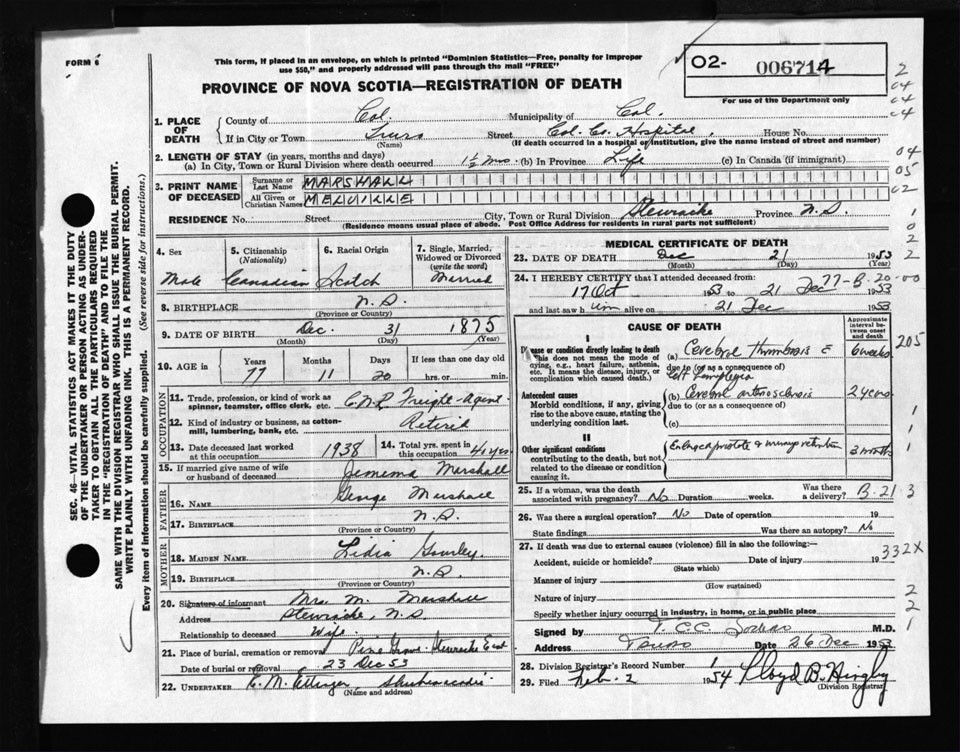 FORM 6
This form, if placed in an envelope, on which is printed "Dominion Statistics—Free, penalty for improper
use $50," and properly addressed will pass through the mail "FREE"
02- 006714
For use of the Department only
PROVINCE OF NOVA SCOTIA—REGISTRATION OF DEATH
1. PLACE OF DEATH
County of Col. Municipality of Col.
If in City or Town Truro Street Col. Co. Hospital. House No.
(Name) (If death occurred in a hospital or institution, give the name instead of street and number)
2. LENGTH OF STAY (in years, months and days)
(a) In City, Town or Rural Division where death occurred 1½ mos. (b) In Province Life (c) In Canada (if immigrant)
3. PRINT NAME OF DECEASED
Surname or Last Name MARSHALL
All Given or Christian Names MELVILLE
RESIDENCE No. Street City, Town or Rural Division Stewiacke Province N.S.
(Residence means usual place of abode. Post Office Address for residents in rural parts not sufficient)
4. Sex Male
5. Citizenship (Nationality) Canadian
6. Racial Origin Scotch
7. Single, Married, Widowed or Divorced (write the word) Married
8. BIRTHPLACE N.S.
(Province or Country)
9. DATE OF BIRTH Dec. 31 1875
(Month) (Day) (Year)
10. AGE in Years 77 Months 11 Days 20 If less than one day old hrs. or min.
OCCUPATION
11. Trade, profession, or kind of work as spinner, teamster, office clerk, etc. C.N.R Freight-Agent
12. Kind of industry or business, as cotton-mill, lumbering, bank, etc. Retired
13. Date deceased last worked at this occupation 1938
14. Total yrs. spent in this occupation 40 yrs
15. If married give name of wife or husband of deceased Jemima Marshall
FATHER
16. Name George Marshall
17. Birthplace N.S.
(Province or Country)
MOTHER
18. Maiden Name Lidia Gourley.
19. Birthplace N.S.
(Province or Country)
20. Signature of informant Mrs. M. Marshall
Address Stewiacke, N.S.
Relationship to deceased Wife.
21. Place of burial, cremation or removal Pine Grove Stewiacke East
Date of burial or removal 23 Dec 53
22. Undertaker E. M. Ettinger, Shubenacadie.
(Name and address)
MEDICAL CERTIFICATE OF DEATH
23. DATE OF DEATH Dec 21 1953
(Month) (Day) (Year)
24. I HEREBY CERTIFY that I attended deceased from:
17 Oct 1953 to 21 Dec 1953
77-B-20-00
and last saw him alive on 21 Dec 1953
CAUSE OF DEATH
Approximate interval between onset and death
I
Disease or condition directly leading to death
This does not mean the mode of dying, e.g., heart failure, asthenia, etc. It means the disease, injury, or complication which caused death.
(a) Cerebral thrombosis c̄ 6 weeks
due to (or as a consequence of)
left hemiplegia
Antecedent causes
Morbid conditions, if any, giving rise to the above cause, stating the underlying condition last
(b) Cerebral arteriosclerosis 2 years
due to (or as a consequence of)
(c)
II
Other significant conditions
contributing to the death, but not related to the disease or condition causing it.
Enlarged prostate & urinary retention 3 months
25. If a woman, was the death associated with pregnancy? No Duration weeks. Was there a delivery? B-21
26. Was there a surgical operation? No Date of operation 19
State findings Was there an autopsy? No
27. If death was due to external causes (violence) fill in also the following:—
Accident, suicide or homicide? Date of injury 19
(State which)
332X
Manner of injury
(How sustained)
Nature of injury
Specify whether injury occurred in industry, in home, or in public place
Signed by M.D.
Address Truro Date 26 Dec 1953
28. Division Registrar's Record Number 1
29. Filed Feb. 2 1954 Lloyd B. Higby
(Division Registrar)
SEC. 46—VITAL STATISTICS ACT MAKES IT THE DUTY
OF THE UNDERTAKER OR PERSON ACTING AS UNDER-
TAKER TO OBTAIN ALL THE PARTICULARS REQUIRED
IN THE "REGISTRATION OF DEATH" AND TO FILE THE
SAME WITH THE DIVISION REGISTRAR WHO SHALL ISSUE THE BURIAL PERMIT.
WRITE PLAINLY WITH UNFADING INK. THIS IS A PERMANENT RECORD.
Every item of information should be carefully supplied. (See reverse side for instructions.)
2
04
04
04
04
05
02
1
0
2
2
205
1
1
1
3
2
2
1